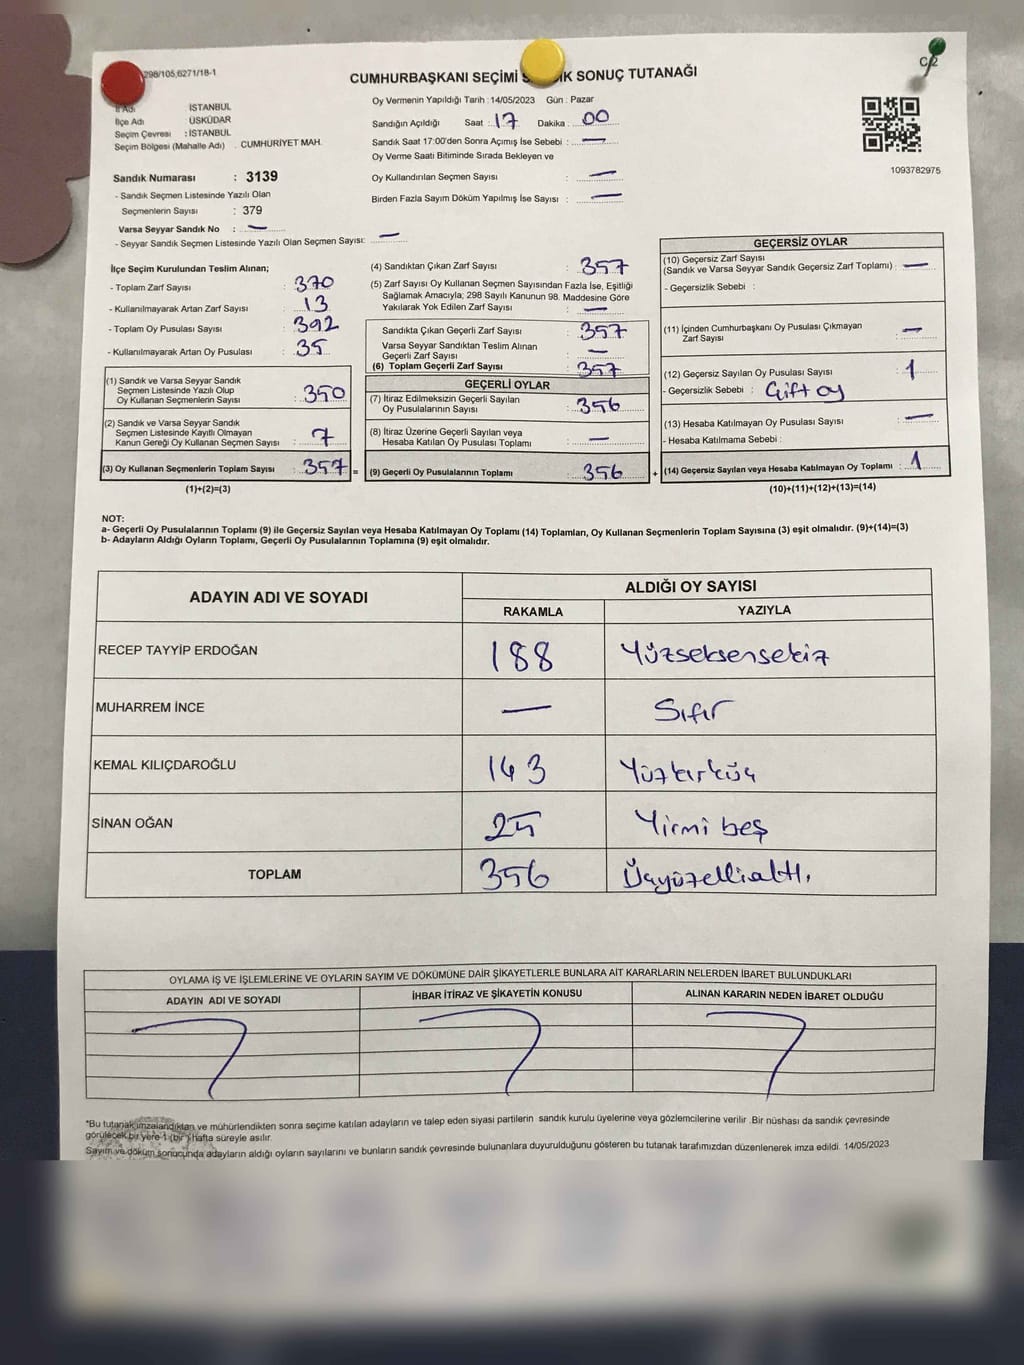 298/105,6271/18-1
C/2
CUMHURBAŞKANI SEÇİMİ SONUÇ TUTANAĞI
İl Adı : İSTANBUL
İlçe Adı : ÜSKÜDAR
Seçim Çevresi : İSTANBUL
Seçim Bölgesi (Mahalle Adı) . CUMHURİYET MAH.
Sandık Numarası : 3139
- Sandık Seçmen Listesinde Yazılı Olan
Seçmenlerin Sayısı : 379
Varsa Seyyar Sandık No : —
- Seyyar Sandık Seçmen Listesinde Yazılı Olan Seçmen Sayısı: —
Oy Vermenin Yapıldığı Tarih : 14/05/2023 Gün : Pazar
Sandığın Açıldığı Saat : 17 Dakika : 00
Sandık Saat 17:00'den Sonra Açımış İse Sebebi : —
Oy Verme Saati Bitiminde Sırada Bekleyen ve
Oy Kullandırılan Seçmen Sayısı : —
Birden Fazla Sayım Döküm Yapılmış İse Sayısı : —
1093782975
İlçe Seçim Kurulundan Teslim Alınan;
- Toplam Zarf Sayısı : 370
- Kullanılmayarak Artan Zarf Sayısı : 13
- Toplam Oy Pusulası Sayısı : 392
- Kullanılmayarak Artan Oy Pusulası : 35
(1) Sandık ve Varsa Seyyar Sandık
Seçmen Listesinde Yazılı Olup
Oy Kullanan Seçmenlerin Sayısı : 350
(2) Sandık ve Varsa Seyyar Sandık
Seçmen Listesinde Kayıtlı Olmayan
Kanun Gereği Oy Kullanan Seçmen Sayısı : 7
(3) Oy Kullanan Seçmenlerin Toplam Sayısı : 357 =
(1)+(2)=(3)
(4) Sandıktan Çıkan Zarf Sayısı : 357
(5) Zarf Sayısı Oy Kullanan Seçmen Sayısından Fazla İse, Eşitliği
Sağlamak Amacıyla; 298 Sayılı Kanunun 98. Maddesine Göre
Yakılarak Yok Edilen Zarf Sayısı : —
Sandıkta Çıkan Geçerli Zarf Sayısı : 357
Varsa Seyyar Sandıktan Teslim Alınan
Geçerli Zarf Sayısı : —
(6) Toplam Geçerli Zarf Sayısı : 357
GEÇERLİ OYLAR
(7) İtiraz Edilmeksizin Geçerli Sayılan
Oy Pusulalarının Sayısı : 356
(8) İtiraz Üzerine Geçerli Sayılan veya
Hesaba Katılan Oy Pusulası Toplamı : —
(9) Geçerli Oy Pusulalarının Toplamı : 356 +
GEÇERSİZ OYLAR
(10) Geçersiz Zarf Sayısı
(Sandık ve Varsa Seyyar Sandık Geçersiz Zarf Toplamı) : —
- Geçersizlik Sebebi :
(11) İçinden Cumhurbaşkanı Oy Pusulası Çıkmayan
Zarf Sayısı : —
(12) Geçersiz Sayılan Oy Pusulası Sayısı : 1
- Geçersizlik Sebebi : Çift oy
(13) Hesaba Katılmayan Oy Pusulası Sayısı : —
- Hesaba Katılmama Sebebi :
(14) Geçersiz Sayılan veya Hesaba Katılmayan Oy Toplamı : 1
(10)+(11)+(12)+(13)=(14)
NOT:
a- Geçerli Oy Pusulalarının Toplamı (9) ile Geçersiz Sayılan veya Hesaba Katılmayan Oy Toplamı (14) Toplamları, Oy Kullanan Seçmenlerin Toplam Sayısına (3) eşit olmalıdır. (9)+(14)=(3)
b- Adayların Aldığı Oyların Toplamı, Geçerli Oy Pusulalarının Toplamına (9) eşit olmalıdır.
ADAYIN ADI VE SOYADI ALDIĞI OY SAYISI
RAKAMLA YAZIYLA
RECEP TAYYİP ERDOĞAN 188 Yüzseksensekiz
MUHARREM İNCE — Sıfır
KEMAL KILIÇDAROĞLU 143 Yüzkırküç
SİNAN OĞAN 25 Yirmi beş
TOPLAM 356 Üçyüzellialtı.
OYLAMA İŞ VE İŞLEMLERİNE VE OYLARIN SAYIM VE DÖKÜMÜNE DAİR ŞİKAYETLERLE BUNLARA AİT KARARLARIN NELERDEN İBARET BULUNDUKLARI
ADAYIN ADI VE SOYADI İHBAR İTİRAZ VE ŞİKAYETİN KONUSU ALINAN KARARIN NEDEN İBARET OLDUĞU
*Bu tutanak imzalandıktan ve mühürlendikten sonra seçime katılan adayların ve talep eden siyasi partilerin sandık kurulu üyelerine veya gözlemcilerine verilir .Bir nüshası da sandık çevresinde
görülecek bir yere 1 (bir) Hafta süreyle asılır.
Sayım ve döküm sonucunda adayların aldığı oyların sayılarını ve bunların sandık çevresinde bulunanlara duyurulduğunu gösteren bu tutanak tarafımızdan düzenlenerek imza edildi. 14/05/2023